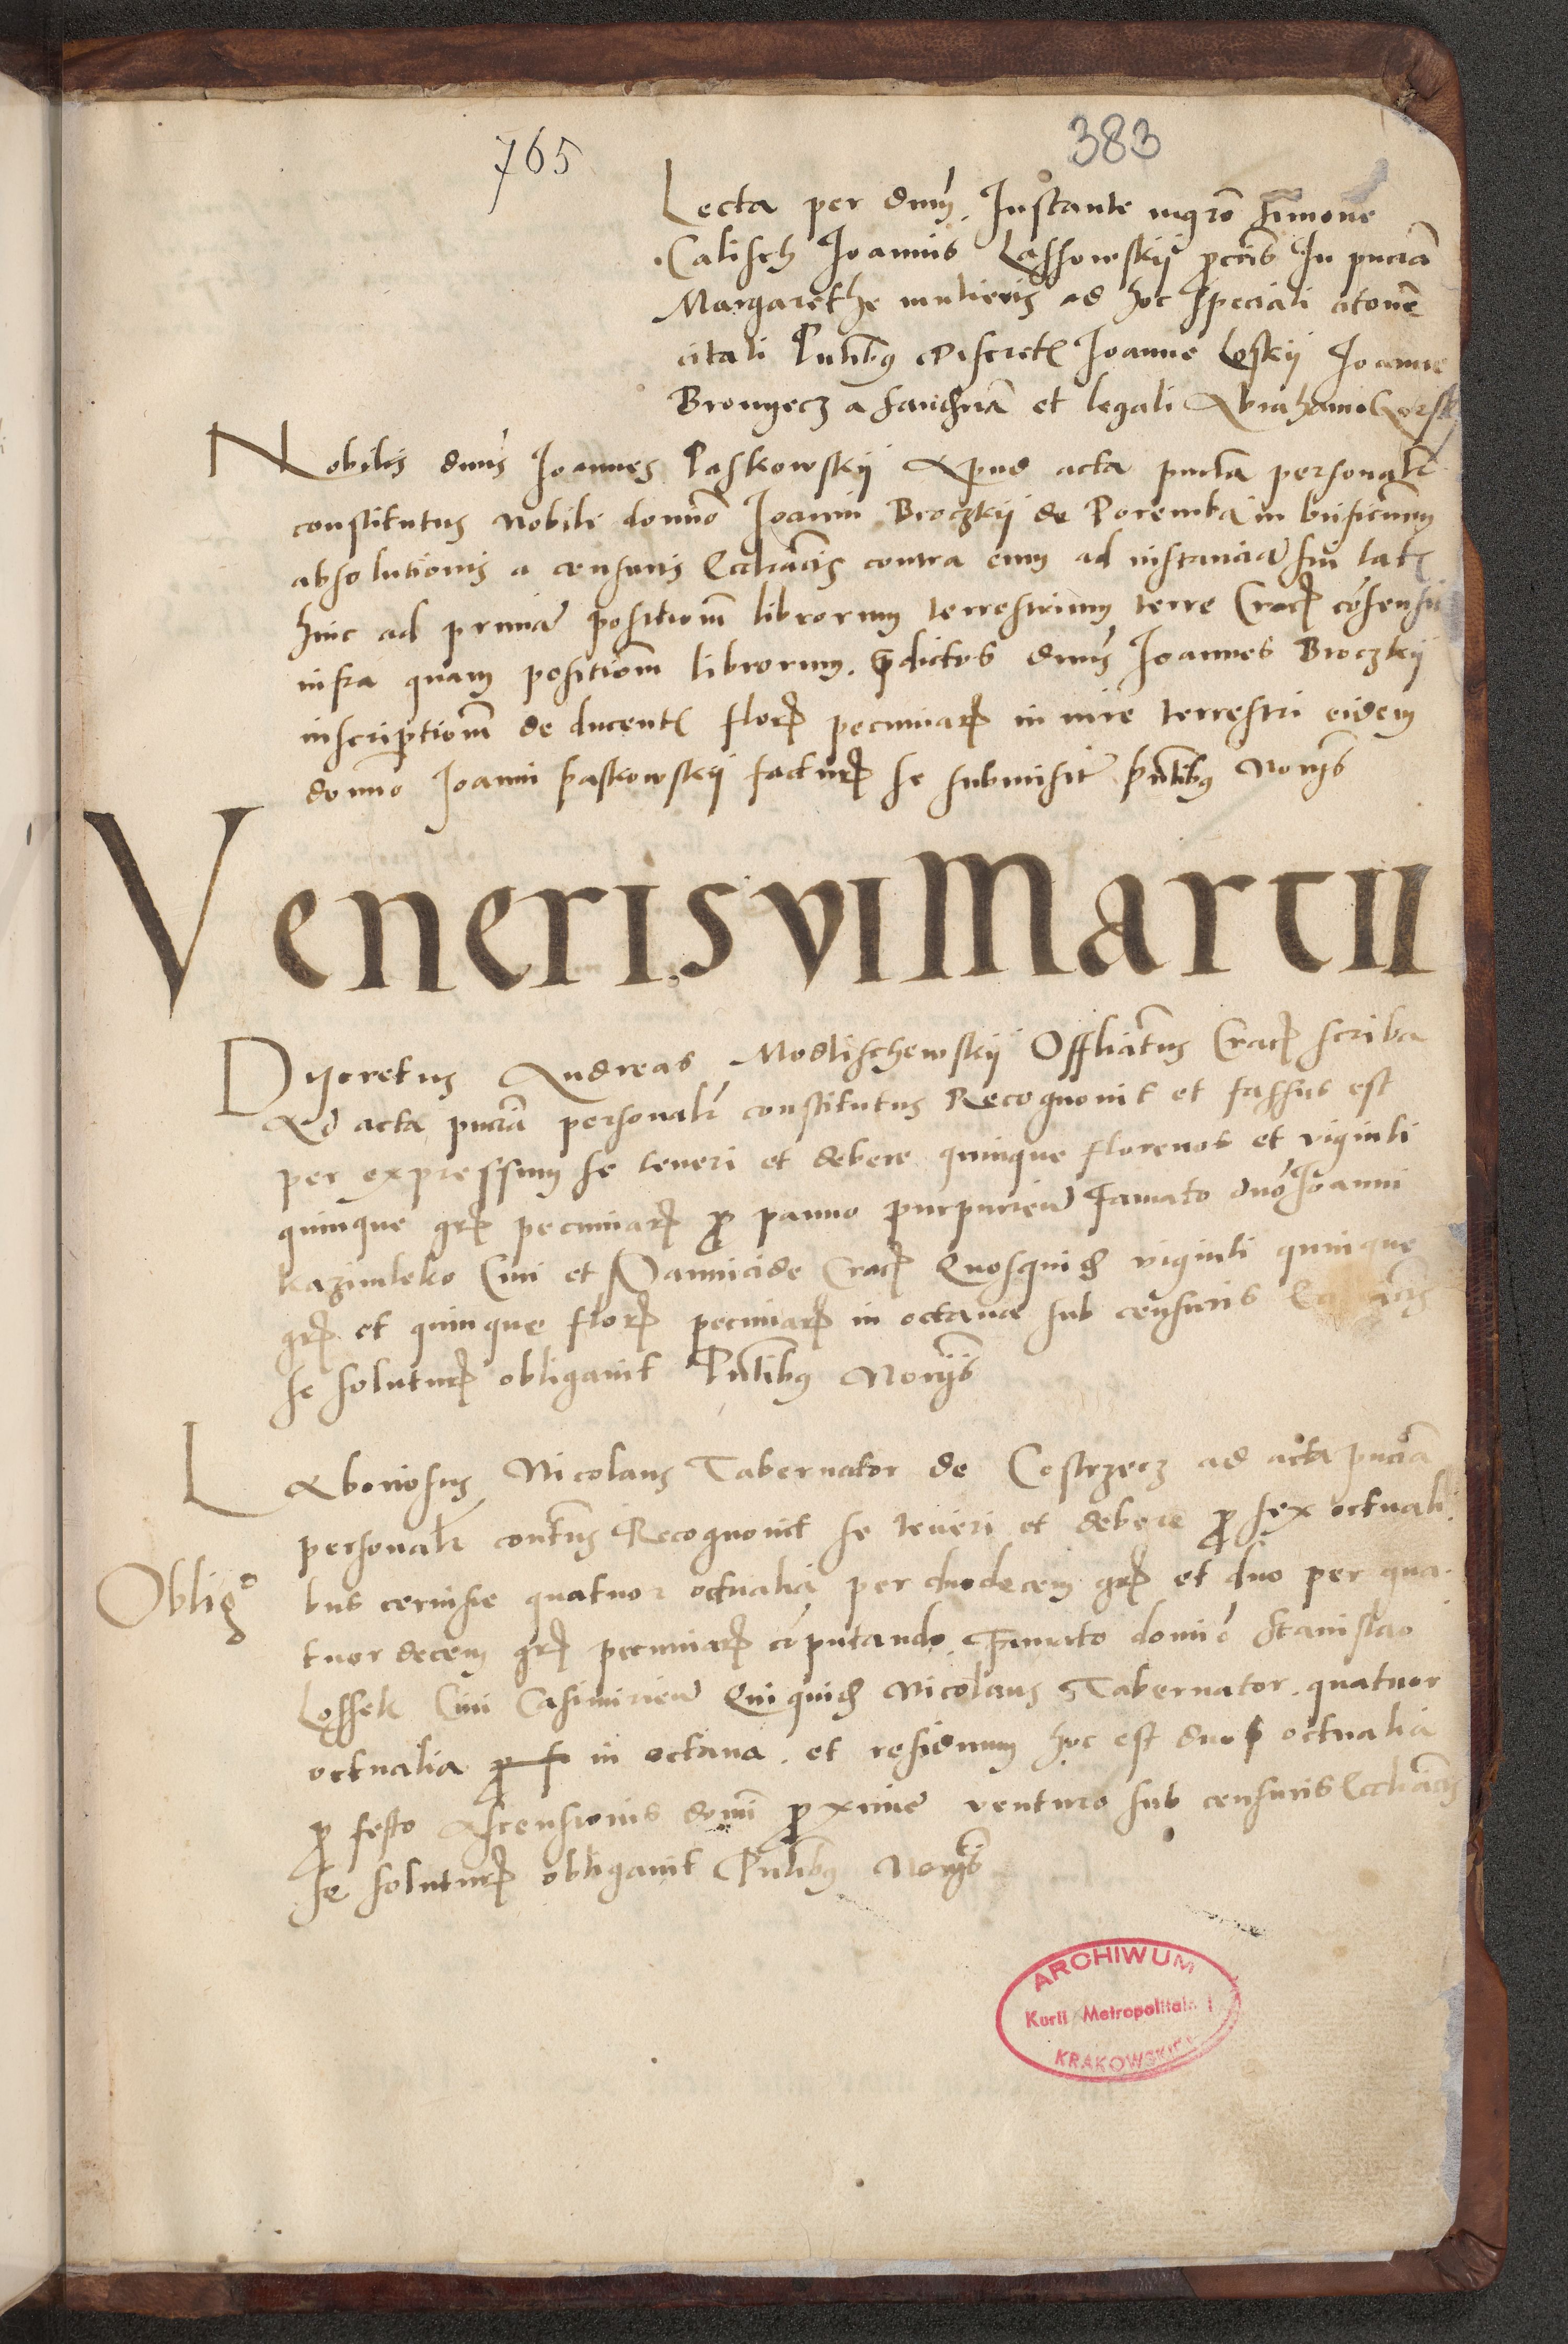 765
383
Lecta per dnm̄. Instante mgrō Simone
Calisch Joannis Lassowskij procr̄is In pn̄ciā
Margarethe mulieris ad hoc speciali citone
citati Pn̄tibus Discret Joanne Leskij Joanne
Bronyecz a et legali Abrahamo Gorsk
Nobilis dnūs Joannes Paskowskij Apud acta pn̄cia personalr̄
constitutus Nobili domno Joanni Broczkij de Poremba in bn̄ficium
absolutionis a censuris Eccl̄iacis contra eum ad instanciā sui lat
hinc ad primā positionm̄ librorum terrestrium terre Crac cōsensit
infra quam positionm̄ librorum. p̄dictus dnūs Joannes Broczkij
inscriptionm̄ de ducent flor pecuniar in iure terrestri eidem
domno Joanni paskowskij factur se submisit pn̄tibus Noryis
Veneris VI Martii
Discretus Andreas Modlischewskij Offl̄iatus Crac scriba
Ad acta pn̄cia personalr̄ constitutus Recognovit et fassus est
per expressum se teneri et debere quinque florenos et viginti
quinque gr pecuniar pro panno purpurien Famato dnō Joanni
Kazimleko Civi et Pannicide Crac Quosquid viginti quinque
gr et quinque flor pecuniar in octava sub censuris
se solutur obligavit Pn̄tibus Noryis
Laboriosus Nicolaus Tabernator de Costrzecz ad acta pn̄cia
personalr̄ contus Recognovit se teneri et debere pro sex octuali
Obligᵒ
bus cervisie quatuor octualia per duodecem gr et duo per qua-
tuordecem gr pecuniar cōputando. Famato domīo Stanislao
Lossek Civi Casimirien Qui quid Nicolaus Tabernator. quatuor
octualia pro f in octava. et residuum hoc est duo octualia
pro festo Ascensionis domī proxime venturo sub censuris Eccl̄iacis
se solutur obligavit Pn̄tibus Noryis
ARCHIWUM
Kurii Metropolitaln
KRAKOWSKIEJ